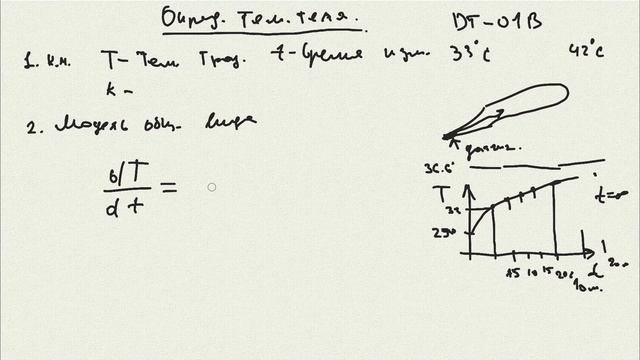 Опред. тем. тела.
DT-01B
1. к.м. T- Тем град. t- время изм. 33°C 42°C
k -
2. Модель общ. вида
датчик.
36.6°
T
t=∞
33
25°
dT
dt =
15 10 15 20c
10м.